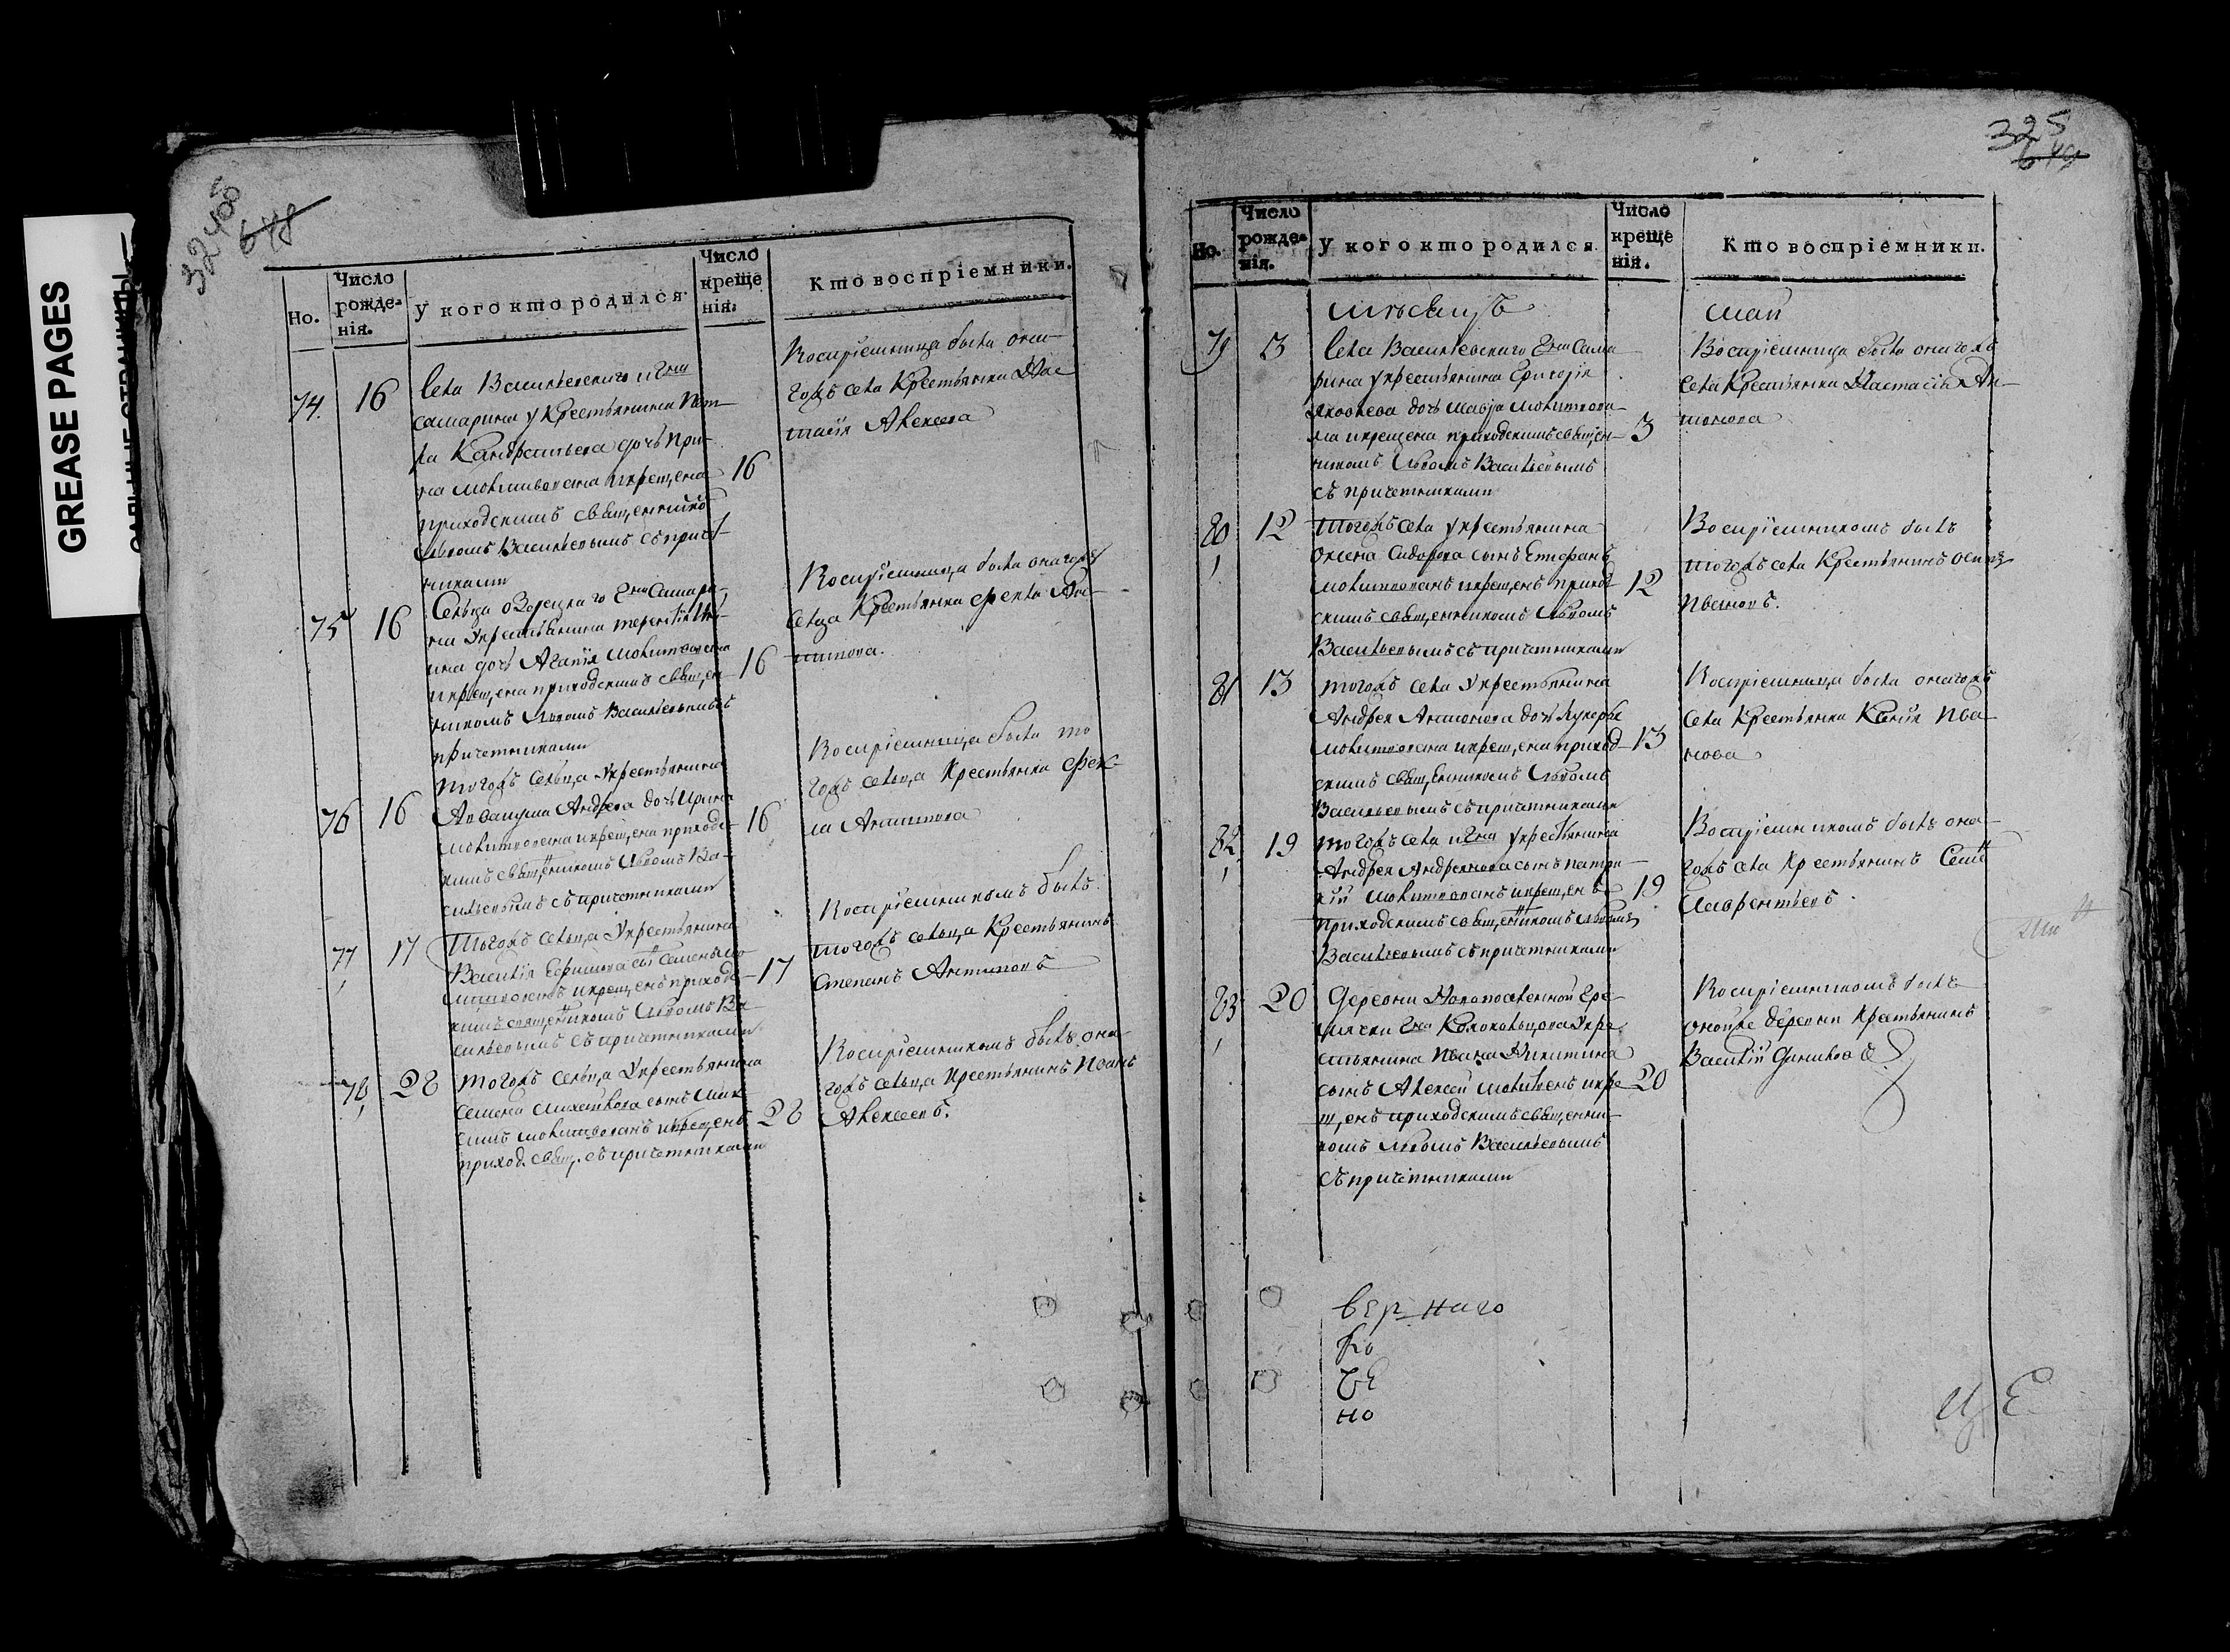 GREASE PAGES
324об
648
Но.
Число рожденія.
У кого кто родился.
Число крещенія.
Кто воспріемники.
74. 16
Села Васильевского и гна
самарина у крестьянина Пет-
ра Кандратьева дочь Ири-
на молитвована и крещена 16
приходскимъ священнико
Львомъ Васильевымъ съ прич-
никами
Воспріемница была она-
гожъ села Крестьянка Нас
тасія Алексеева
75 16
Сельца Озерецкаго гна Самари-
на у крестьянина терентія
дочь Агапія молитвована
и крещена приходскимъ священ- 16
никомъ Львомъ Васильевымъ съ
причетниками
Воспріемница была онагожъ
селца Крестьянка фекла Ан-
типова.
76 16
тогожъ сельца у крестьянина
Авакума Андреева дочь Ирина
молитвована и крещена приход- 16
скимъ священникомъ Львомъ Ва-
сильевымъ съ причетниками
Воспріемница была то
гожъ сельца Крестьянка фек-
ла Антипова
77 17
Тогожъ сельца у крестьянина
Василія Ефимова Семенъ мо
литвованъ и крещенъ приходс- 17
кимъ священникомъ Львомъ Ва-
сильевымъ съ причетниками
Воспріемникомъ былъ
тогожъ сельца Крестьянинъ
Степанъ Антиповъ
78, 28
тогожъ сельца у крестьянина
семена михайлова сынъ Мак
симъ молитвованъ и крещенъ 28
приход. свящ. съ причетниками
Воспріемникомъ былъ она-
гожъ сельца Крестьянинъ Иванъ
Алексеевъ.
325
649
Но.
Число рожденія.
У кого кто родился.
Число крещенія.
Кто воспріемники.
мѣсяцъ май
79 3
Села Васильевскаго гна Сама
рина у крестьянина Григорія
Яковлева дочь Мавра молитвова-
на и крещена приходскимъ священ- 3
никомъ Львомъ Васильевымъ
съ причетниками
Воспріемница была онагожъ
села Крестьянка Настасія Ан-
тонова
80 12
Тогожъ села у крестьянина
Оксена Сидорова сынъ Епифанъ
молитвованъ и крещенъ приход- 12
скимъ священникомъ Львомъ
Васильевымъ съ причетниками
Воспріемникомъ былъ
тогожъ села Крестьянинъ Осипъ
Ивановъ.
81 13
тогожъ села у крестьянина
Андрея Антонова дочь Лукерья
молитвована и крещена приход- 13
скимъ священникомъ Львомъ
Васильевымъ съ причетниками
Воспріемница была онагожъ
села Крестьянка Ксенія Ива-
нова
82 19
тогожъ села и гна у крестьянина
Андрея Андреянова сынъ патри-
кій молитвованъ и крещенъ 19
приходскимъ священникомъ Львомъ
Васильевымъ съ причетниками
Воспріемникомъ былъ она-
гожъ села Крестьянинъ Семе
Лаврентьевъ.
83 20
деревни Новопоселенной Гре-
мячки гна Колокольцова у кре-
стьянина Ивана Никитина
сынъ Алексей молитвенъ и кре- 20
щенъ приходскимъ священни-
комъ Львомъ Васильевымъ
съ причетниками
Воспріемникомъ былъ
оной же деревни Крестьянинъ
Василій Даниловъ
вер наго
но
це